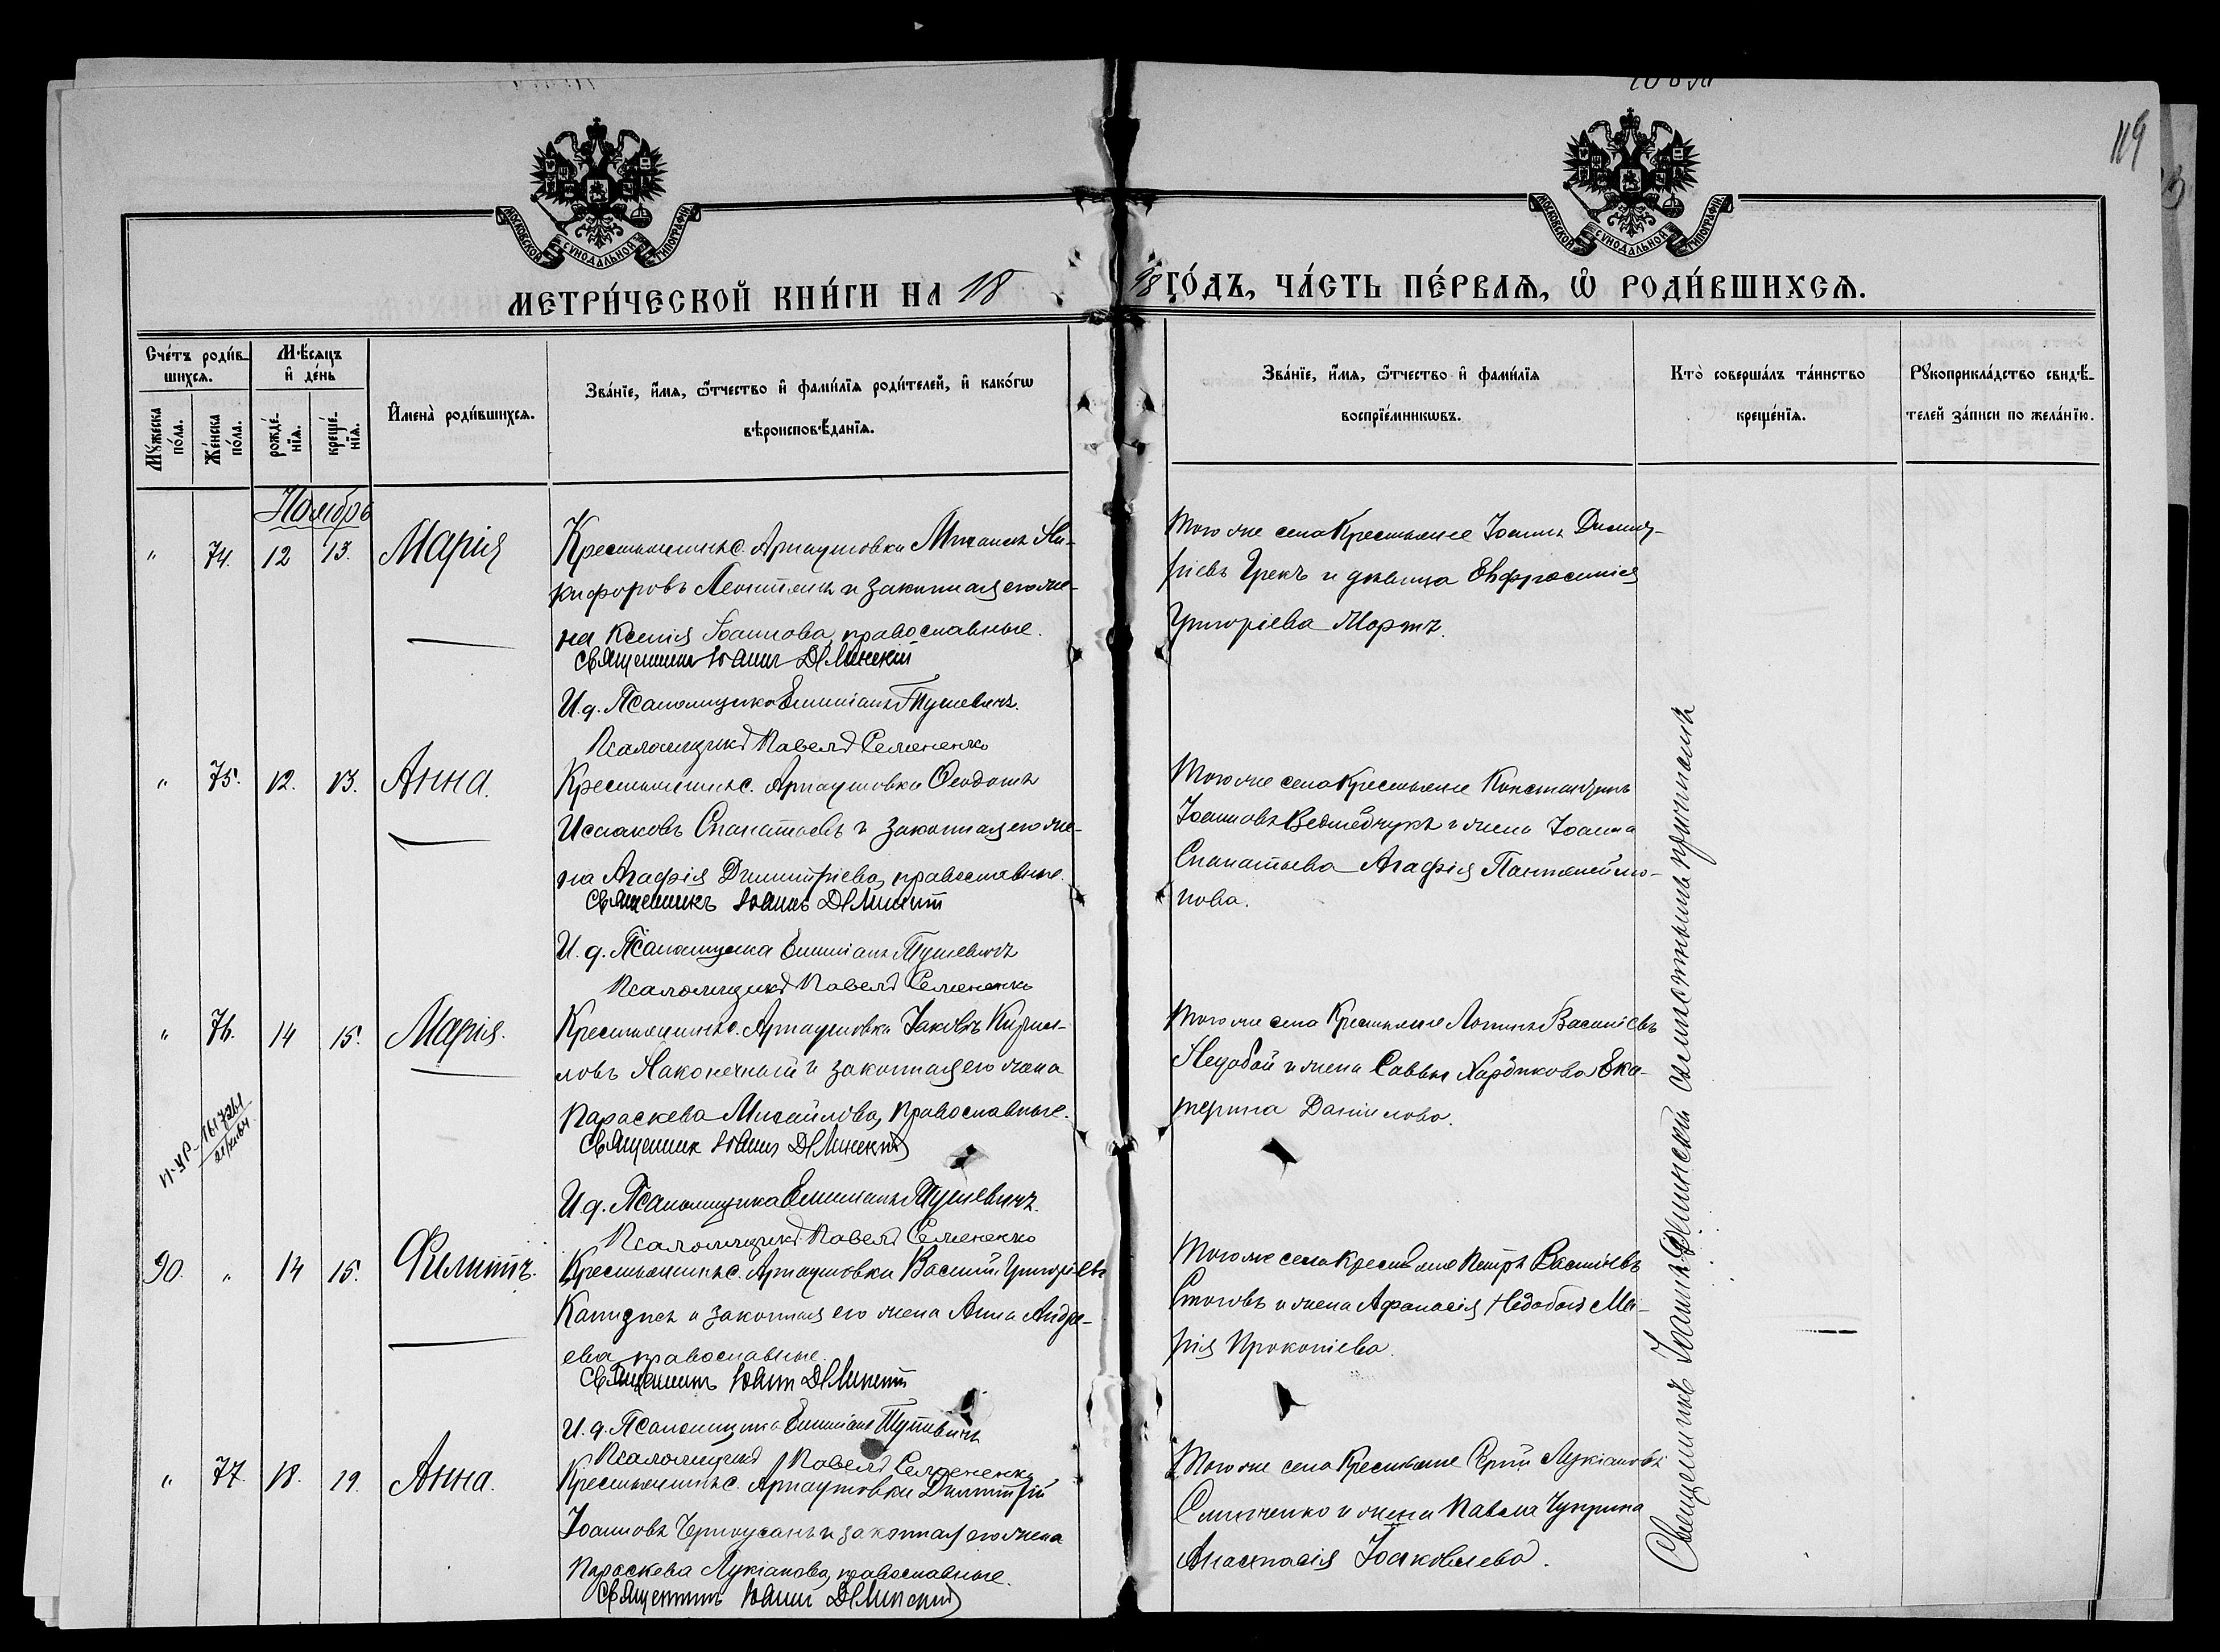 119
МОСКОВСКОЙ СѴНОДАЛЬНОЙ ТИПОГРАФІИ
МОСКОВСКОЙ СѴНОДАЛЬНОЙ ТИПОГРАФІИ
МЕТРИ́ЧЕСКОЙ КНИ́ГИ НА 1898 ГО́ДЪ, ЧА́СТЬ ПЕ́РВАѦ, Ѡ҆ РОДИ́ВШИХСѦ.
Сче́тъ роди́в-
шихсѧ.
Мꙋ́жеска по́ла.
Же́нска по́ла.
Мѣ́сѧцъ и҆ де́нь
рожде́-
нїѧ.
креще́-
нїѧ.
И҆мена̀ роди́вшихсѧ.
Зва́нїе, и҆́мѧ, ѻ҆́тчество и҆ фами́лїѧ роди́телей, и҆ како́гѡ
вѣроисповѣ́данїѧ.
Зва́нїе, и҆́мѧ, ѻ҆́тчество и҆ фами́лїѧ
воспрїе́мникѡвъ.
Кто̀ соверша́лъ та́инство
креще́нїѧ.
Рꙋкоприкла́дство свидѣ́-
телей за́писи по жела́нїю.
Ноябрь
" 74. 12 13. Марія
Крестьянинъ с. Арнаутовки Михаилъ Ни-
кифоровъ Леонтякъ и законная его же-
на Ксенія Іоаннова, православные.
Священникъ Іоаннъ Длинскій
И. д. Псаломщика Емиліанъ
Псаломщикъ Павелъ Семененко
Того же села крестьяне Іоаннъ Димит-
ріевъ Грекъ и дѣвица Евфросинія
Григоріева Мортъ.
" 75. 12. 13. Анна.
Крестьянинъ с. Арнаутовки Ѳеодотъ
Исааковъ Спанатьевъ и законная его же-
на Агафія Димитріева, православные.
Священникъ Іоаннъ Длинскій
И. д. Псаломщика Емиліанъ
Псаломщикъ Павелъ Семененко
Того же села крестьяне Константинъ
Іоанновъ Ведмедчукъ и жена Іоанна
Спанатьева Агафія Пантелеймо-
нова.
" 76. 14 15. Марія.
Крестьянинъ с. Арнаутовки Іаковъ Кирил-
ловъ Наконечный и законная его жена
Параскева Михайлова, православные.
Священникъ Іоаннъ Длинскій
И. д. Псаломщика Емиліанъ
Псаломщикъ Павелъ Семененко
Того же села крестьяне Логинъ Василіевъ
Недобой и жена Саввы Ека-
терина Даніилова.
90. " 14 15. Филиппъ.
Крестьянинъ с. Арнаутовки Василій Григоріевъ
и законная его жена Анна Андре-
ева, православные.
Священникъ Іоаннъ Длинскій
И. д. Псаломщика Емиліанъ
Псаломщикъ Павелъ Семененко
Того же села крестьяне Петръ Василіевъ
и жена Афанасія Недобоя Ма-
рія Прокопіева.
" 77. 18. 19. Анна.
Крестьянинъ с. Арнаутовки Димитрій
Іоанновъ Черноусанъ и законная его жена
Параскева Лукіанова, православные.
Священникъ Іоаннъ Длинскій
Того же села крестьяне Сергій Лукіановъ
и жена Павла Чуприна
Анастасія Іаковлева.
Священникъ Іоаннъ Длинскій съ мѣстнымъ причтомъ